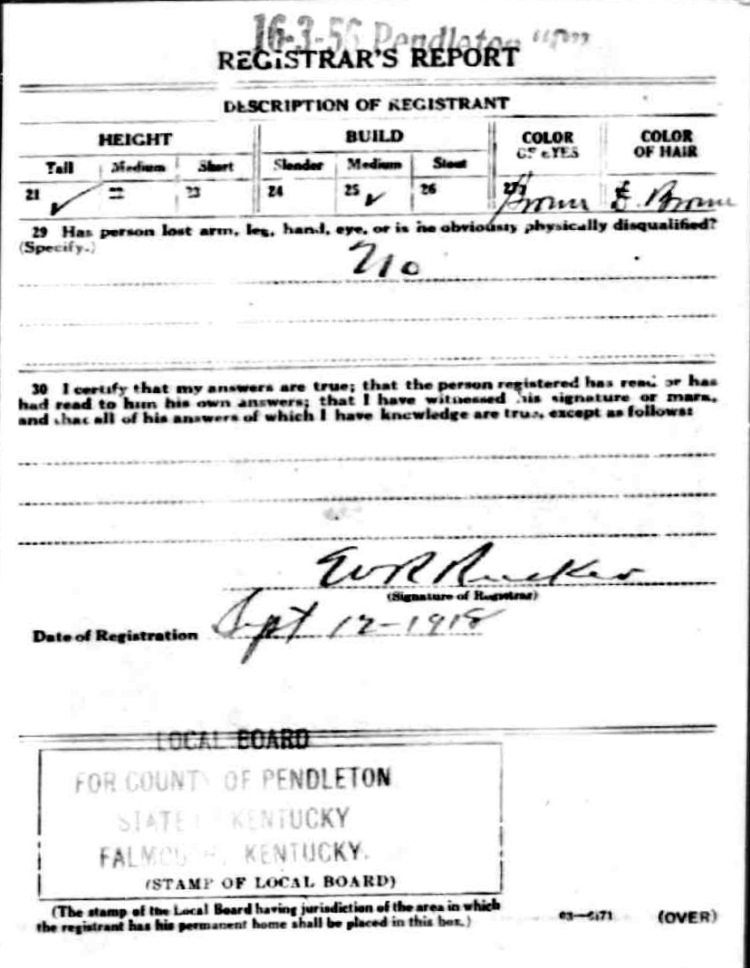 16-3-56 Pendleton "C"
REGISTRAR'S REPORT
DESCRIPTION OF REGISTRANT
HEIGHT BUILD COLOR OF EYES COLOR OF HAIR
Tall Medium Short Slender Medium Stout
21 ✓ 22 23 24 25 ✓ 26 27 Brown D. Brown
29 Has person lost arm, leg, hand, eye, or is he obviously physically disqualified?
(Specify.)
No
30 I certify that my answers are true; that the person registered has read or has
had read to him his own answers; that I have witnessed his signature or mark,
and that all of his answers of which I have knowledge are true, except as follows:
(Signature of Registrar)
Date of Registration Sept 12-1918
LOCAL BOARD
FOR COUNTY OF PENDLETON
STATE KENTUCKY
FALMOUTH, KENTUCKY.
(STAMP OF LOCAL BOARD)
(The stamp of the Local Board having jurisdiction of the area in which
the registrant has his permanent home shall be placed in this box.)
03—6171 (OVER)